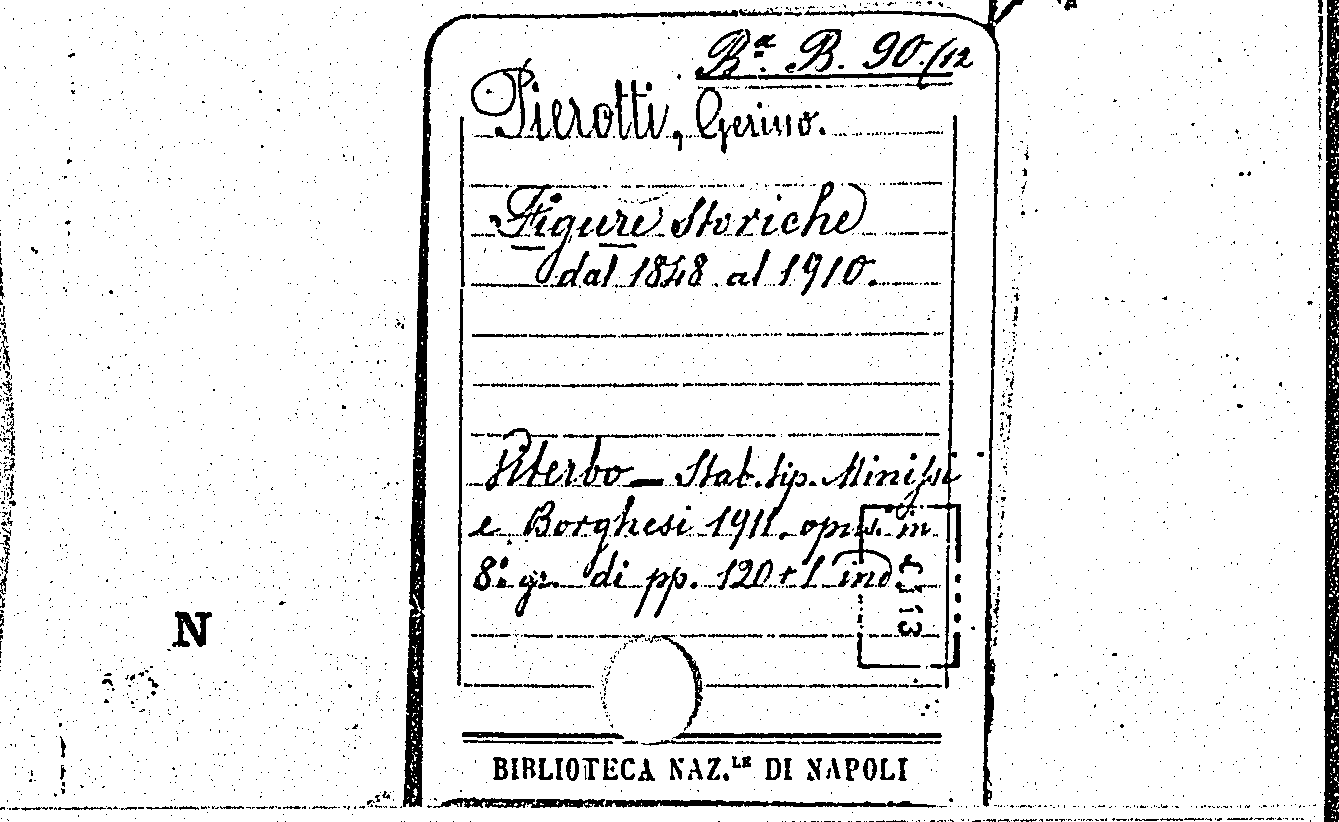 Bª. B. 90.(12
Pierotti, Gerino.
Figure Storiche
dal 1848 al 1910.
Viterbo — Stab. tip. Minissi
e Borghesi 1911. opus. in
8º. gr. di pp. 120+1 ind
N
BIBLIOTECA NAZ.LE DI NAPOLI